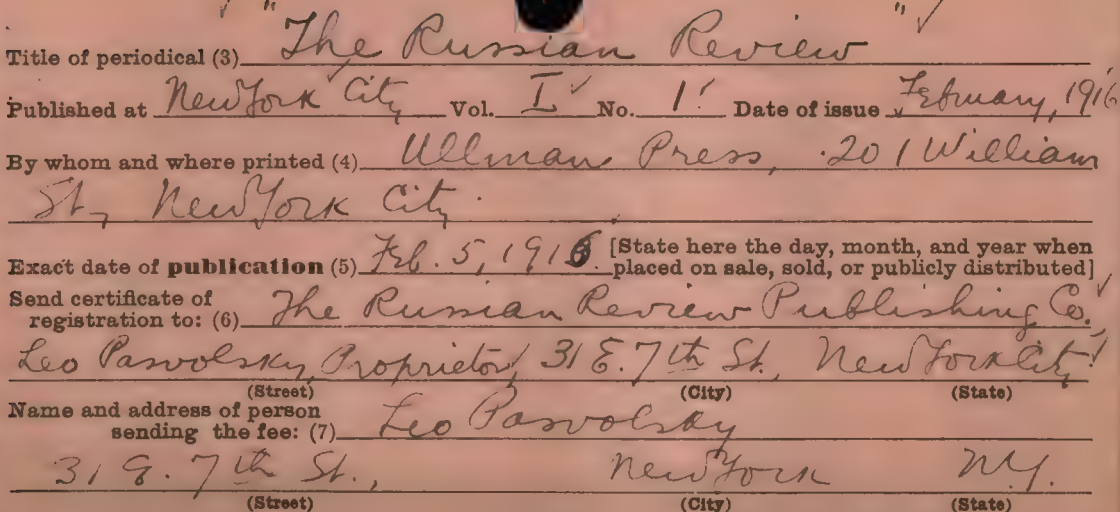 Title of periodical (3) "The Russian Review"
Published at New York City Vol. I No. 1 Date of issue February, 1916
By whom and where printed (4) Ullman Press, 201 William
St, New York City
Exact date of publication (5) Feb. 5, 1916. [State here the day, month, and year when
placed on sale, sold, or publicly distributed]
Send certificate of
registration to: (6) The Russian Review Publishing Co.,
Leo Pasvolsky, Proprietor, 31 E. 7th St., New York City
(Street) (City) (State)
Name and address of person
sending the fee: (7) Leo Pasvolsky
31 E. 7th St., New York N.Y.
(Street) (City) (State)